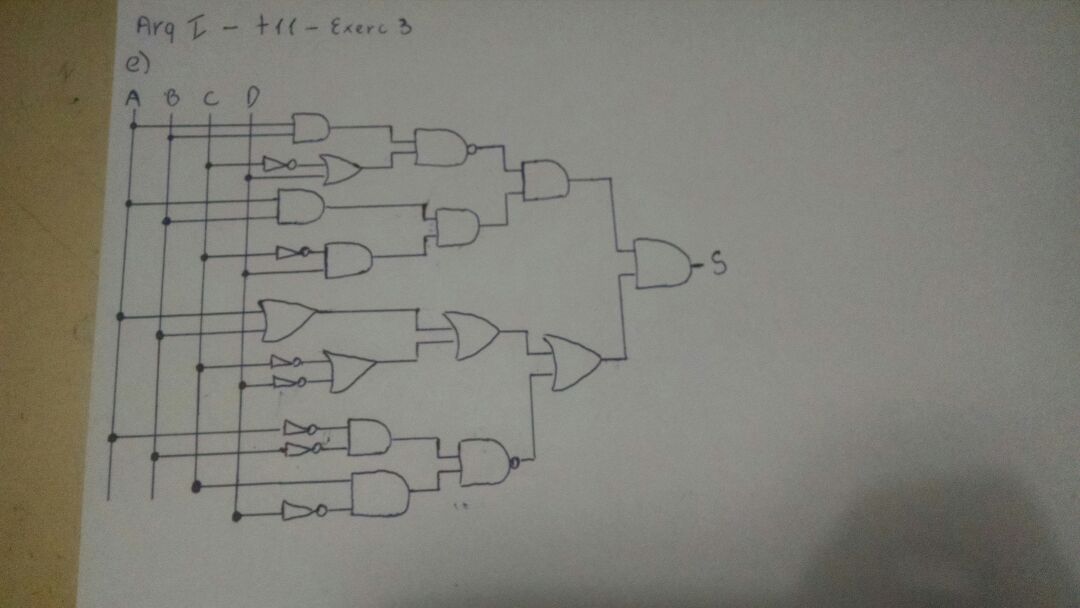 Arq I - t11 - Exerc 3
e)
A B C D
S